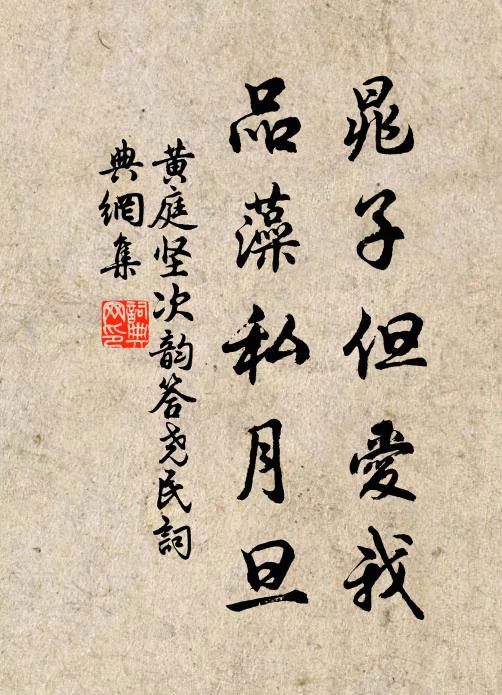 晁子但愛我
品藻私月旦
黄庭坚次韵答尧民詞
典網集
詞典网印